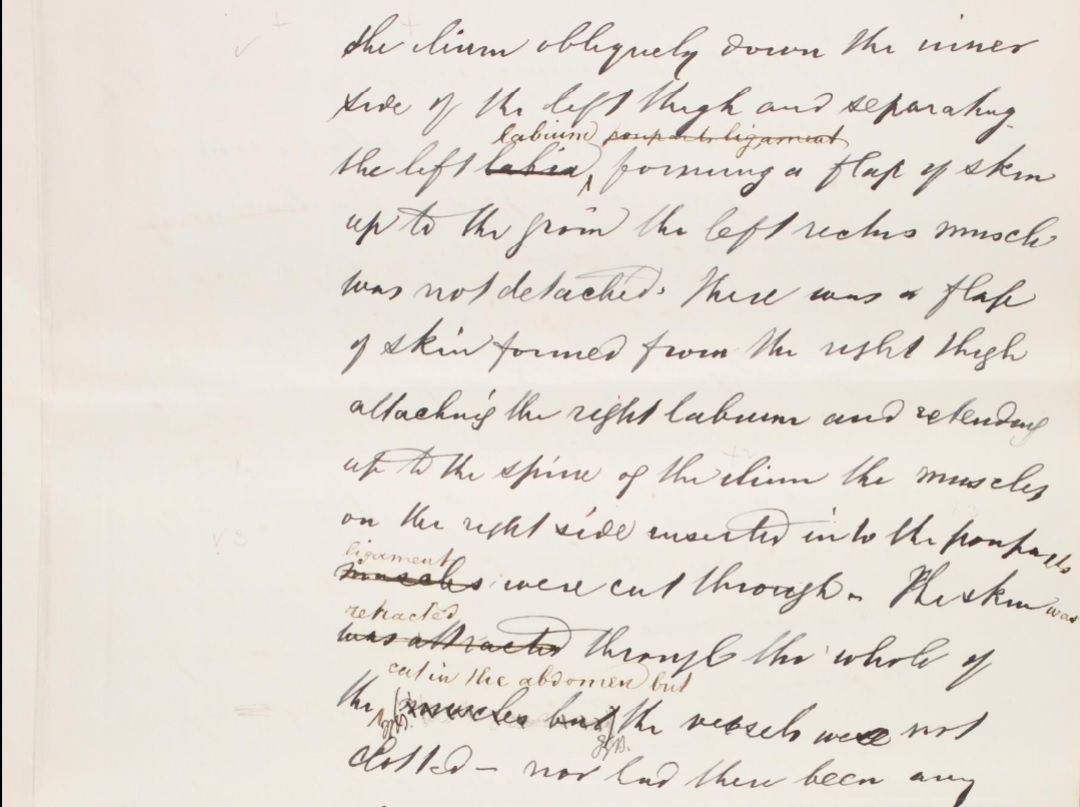 the ilium obliquely down the inner
side of the left thigh and separating
labium pouparts ligament
the left labia forming a flap of skin
up to the groin the left rectus muscle
was not detached. There was a flap
of skin formed from the right thigh
attaching the right labium and extending
up to the spine of the ilium the muscles
on the right side inserted in to the pouparts
ligament
muscles were cut through. The skin was
retracted
was attracted through the whole of
cut in the abdomen but
the muscles but the vessels were not
clotted — nor had there been any